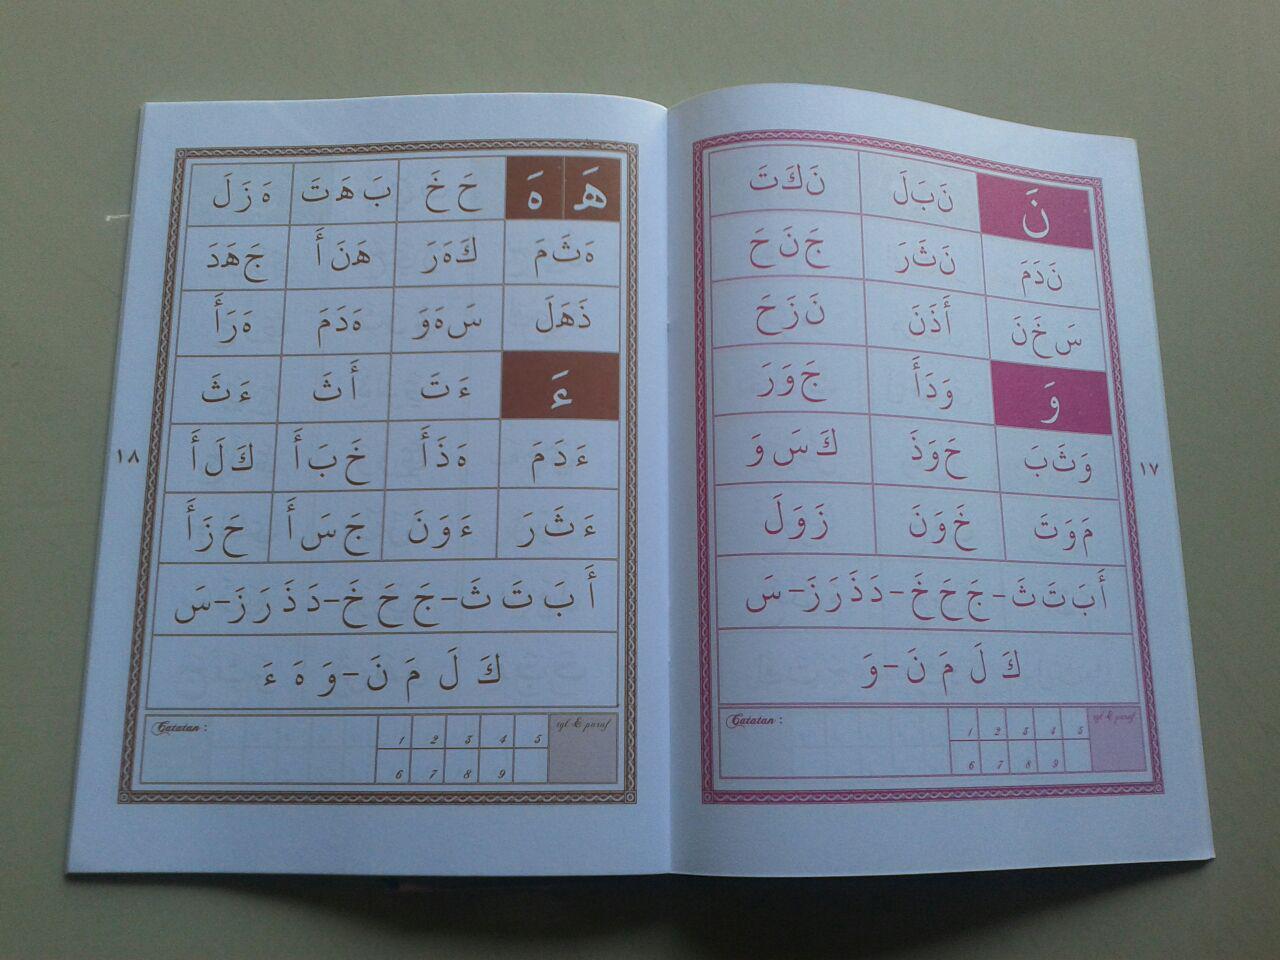 نَ نَ بَ لَ نَ كَ تَ
نَ دَ مَ نَ ثَ رَ جَ نَ حَ
سَ خَ نَ أَ ذَ نَ نَ زَ حَ
وَ وَ دَ أَ جَ وَ رَ
وَ ثَ بَ حَ وَ ذَ كَ سَ وَ
مَ وَ تَ خَ وَ نَ زَ وَ لَ
أَ بَ تَ ثَ - جَ حَ خَ - دَ ذَ رَ زَ - سَ
كَ لَ مَ نَ - وَ
Catatan : 1 2 3 4 5 tgl & paraf
6 7 8 9
١٧
هَ هَ حَ خَ بَ هَ تَ هَ زَ لَ
هَ ثَ مَ كَ هَ رَ هَ نَ أَ جَ هَ دَ
ذَ هَ لَ سَ هَ وَ هَ دَ مَ هَ رَ أَ
ءَ ءَ تَ أَ ثَ ءَ ثَ
ءَ دَ مَ هَ ذَ أَ خَ بَ أَ كَ لَ أَ
ءَ ثَ رَ ءَ وَ نَ جَ سَ أَ حَ زَ أَ
أَ بَ تَ ثَ - جَ حَ خَ - دَ ذَ رَ زَ - سَ
كَ لَ مَ نَ - وَ هَ ءَ
Catatan : 1 2 3 4 5 tgl & paraf
6 7 8 9
١٨